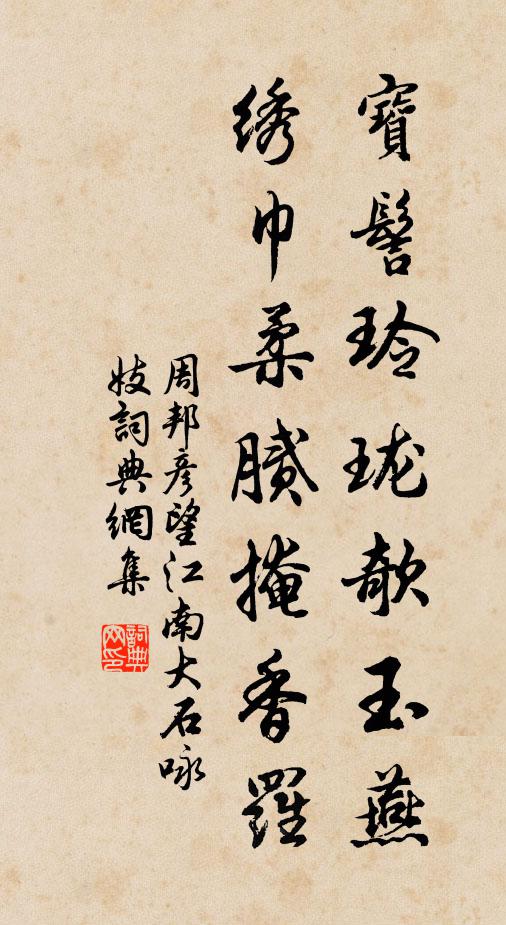 寶髻玲珑欹玉燕
绣巾柔膩掩香羅
周邦彦望江南大石咏
妓詞典網集
詞典
网印